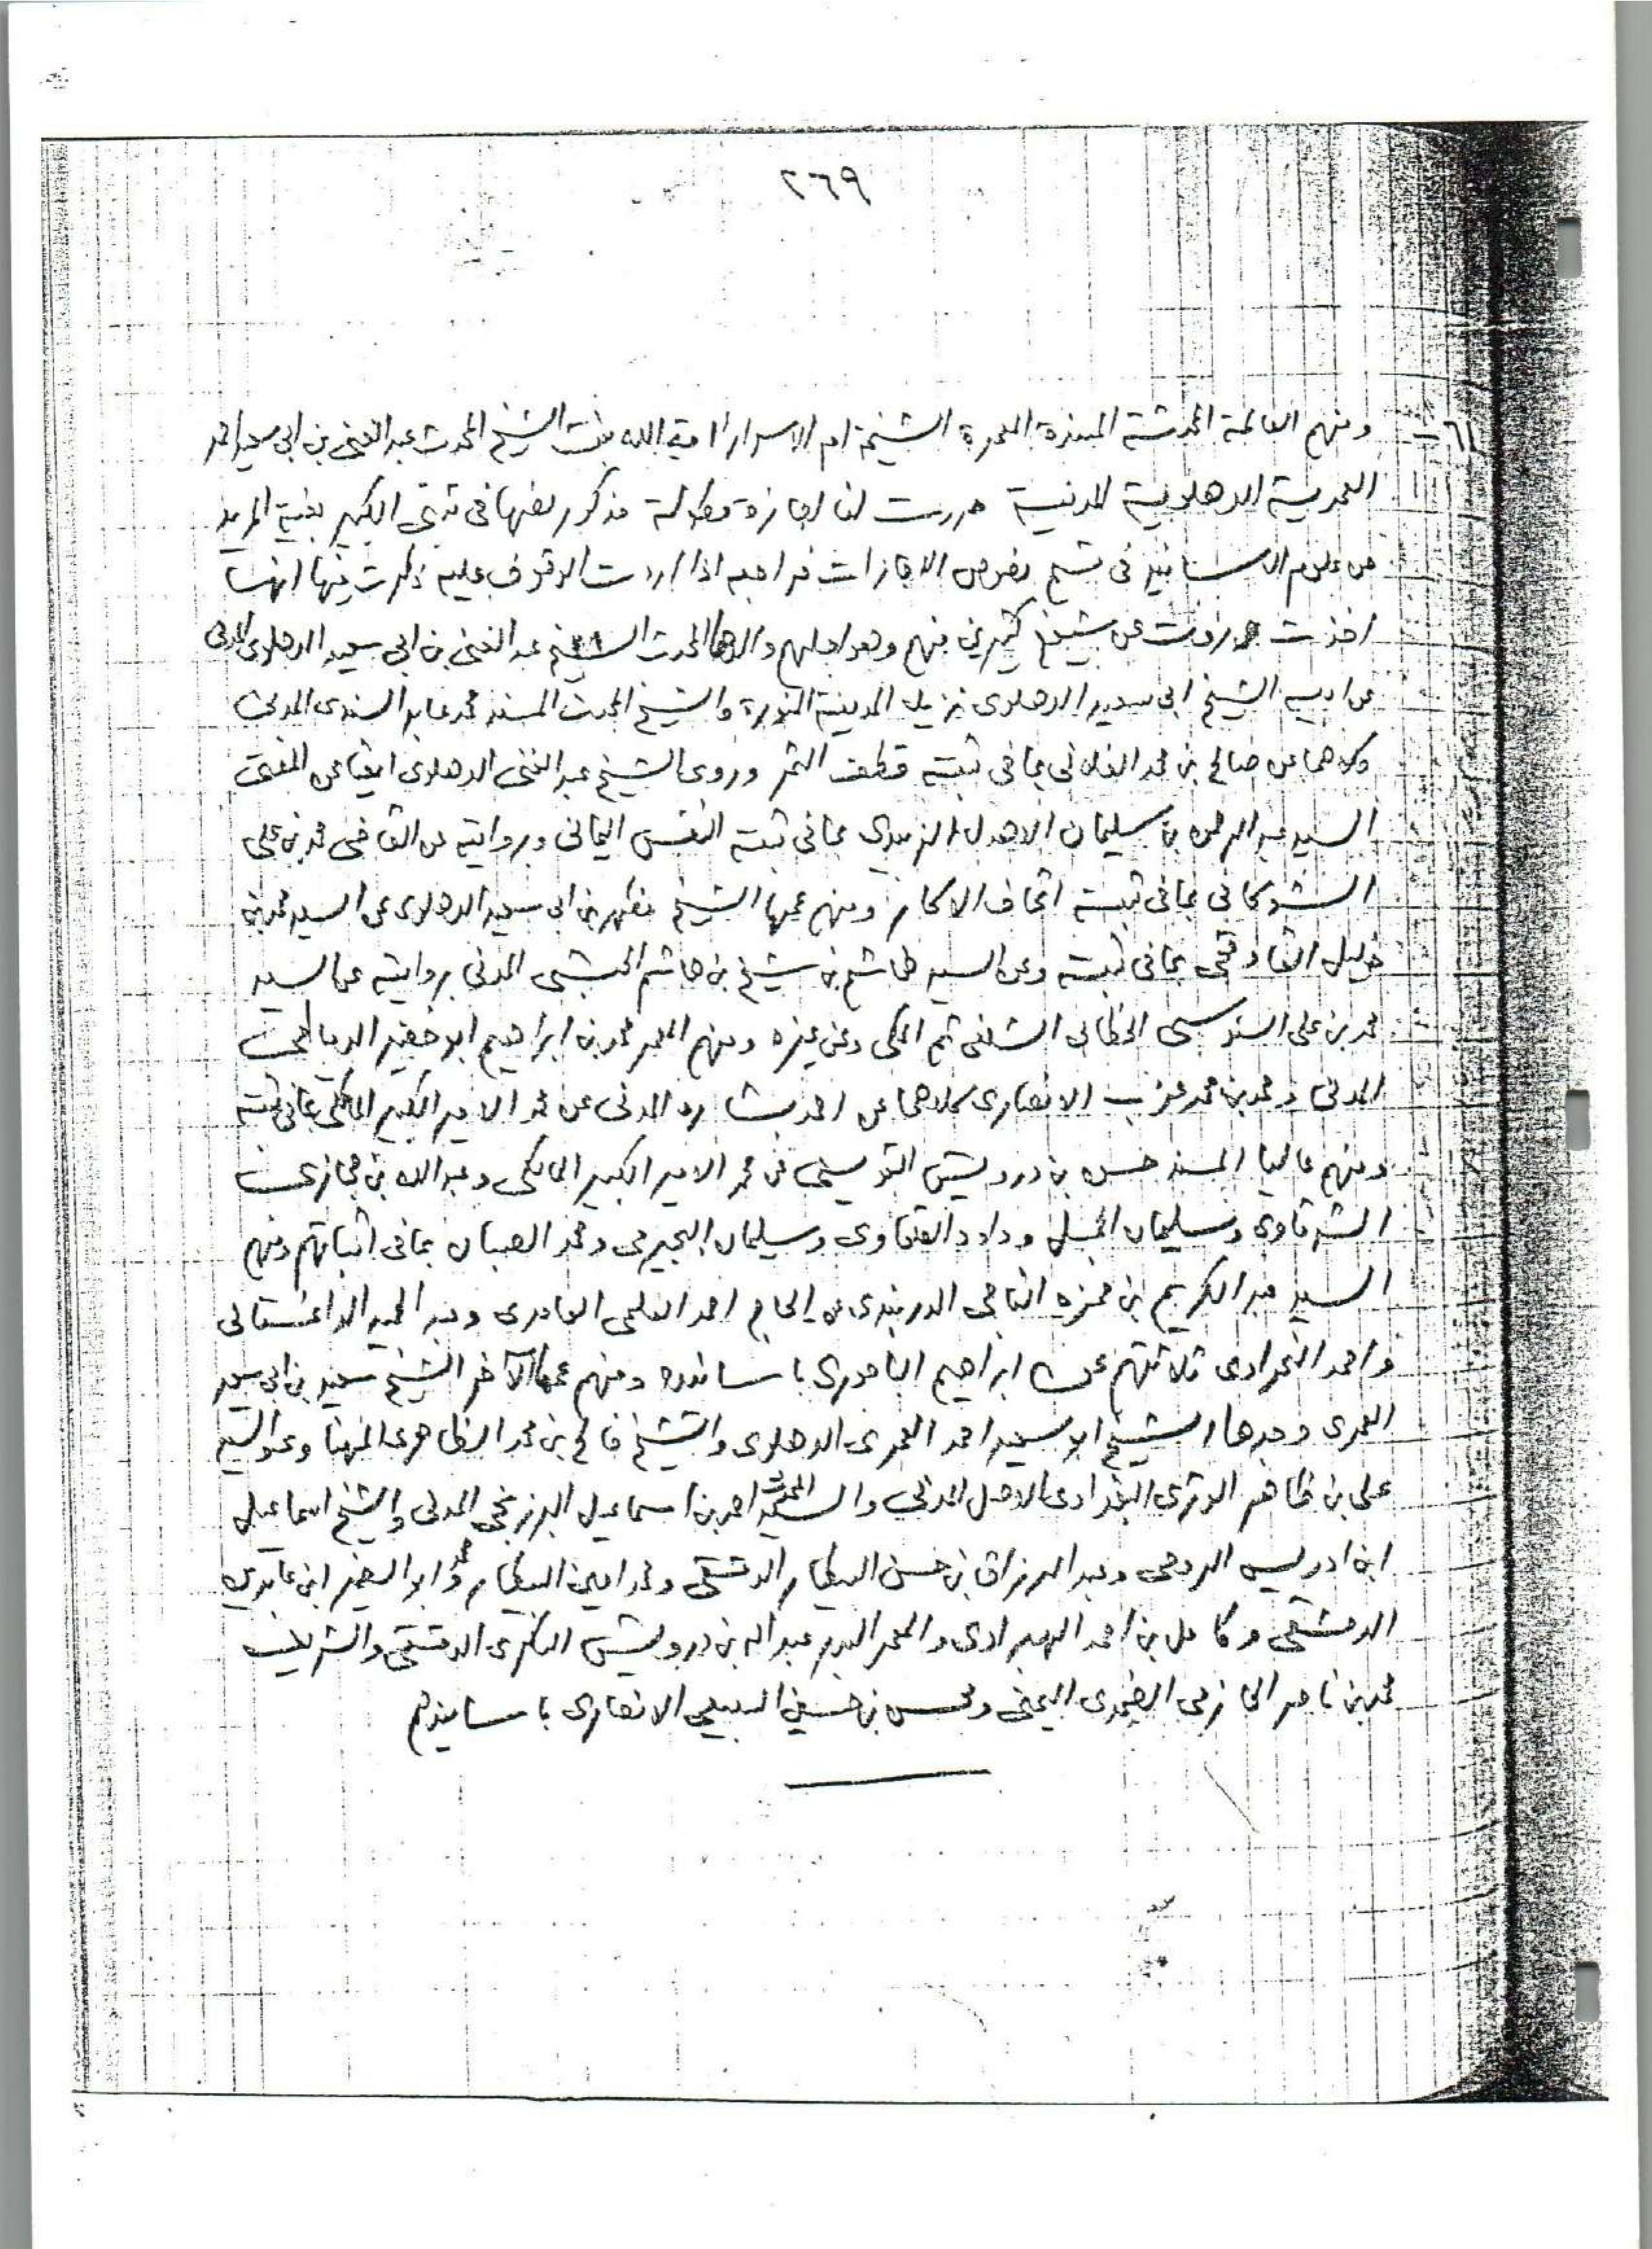 ٢٦٩
٦١ - ومنهم العالمة المحدثة المسندة المعمرة الشيخة ام الاسرار امة الله بنت الشيخ المحدث عبد الغني بن ابي سعيد احمد
العمرية الدهلوية المدنية حررت لنا اجازة مطولة مذكور نصها في ثبتي الكبير بغية المريد
من علوم الاسانيد في قسم نصوص الاجازات فراجعه اذا اردت الوقوف عليه ذكرت فيها انها
اخذت وروت عن شيوخ كثيرين منهم وهو اجلهم والدها المحدث الشيخ عبد الغني بن ابي سعيد الدهلوي المدني
عن ابيه الشيخ ابي سعيد الدهلوي نزيل المدينة المنورة والشيخ المحدث المسند محمد عابد السندي المدني
وكلاهما عن صالح بن محمد الفلاني بما في ثبته قطف الثمر وروى الشيخ عبد الغني الدهلوي ايضا عن المفتي
السيد عبد الرحمن بن سليمان الاهدل الزبيدي بما في ثبته النفس اليماني وبروايته عن القاضي محمد بن علي
الشوكاني بما في ثبته اتحاف الاكابر ومنهم عمها الشيخ مظهر بن ابي سعيد الدهلوي عن السيد محمد بن
خليل القاوقجي بما في ثبته وعن السيد هاشم بن شيخ بن هاشم الحبشي المدني بروايته عن السيد
محمد بن علي السنوسي الخطابي الشلفي ثم المكي وعن غيره ومنهم المعمر محمد بن ابراهيم ابو خضير الدمياطي
المدني ومحمد بن محمد عزب الانصاري كلاهما عن احمد بشاره المدني عن محمد الامير الكبير المالكي بما في ثبته
ومنهم عاليا المسند حسن بن درويش القويسني عن محمد الامير الكبير المالكي وعبد الله بن حجازي
الشرقاوي وسليمان الجمل وداود القلعاوي وسليمان البجيرمي ومحمد الصبان بما في اثباتهم ومنهم
السيد عبد الكريم بن حمزه الدربندي عن الحاج احمد القادري وعبد الحميد الداغستاني
واحمد ثلاثتهم عن ابراهيم الباجوري باسانيده ومنهم عمها الآخر الشيخ سعيد بن ابي سعيد
العمري وجدها الشيخ ابو سعيد احمد العمري الدهلوي والشيخ فالح بن محمد الظاهري المهنا وعن السيد
علي بن ظاهر الوتري البغدادي الاصل المدني والسيد المحدث احمد بن اسماعيل البرزنجي المدني والشيخ اسماعيل
ابن ادريس الرومي وعبد الرزاق بن حسن البيطار الدمشقي ومحمد امين البيطار ومحمد ابو الخير ابن عابدين
الدمشقي وكامل بن احمد الهبراوي والمعمر البدر عبد الله بن درويش السكري الدمشقي والشريف
محمد بن ناصر الحازمي الضمدي اليمني ومحسن بن حسين السبيعي الانصاري باسانيدهم